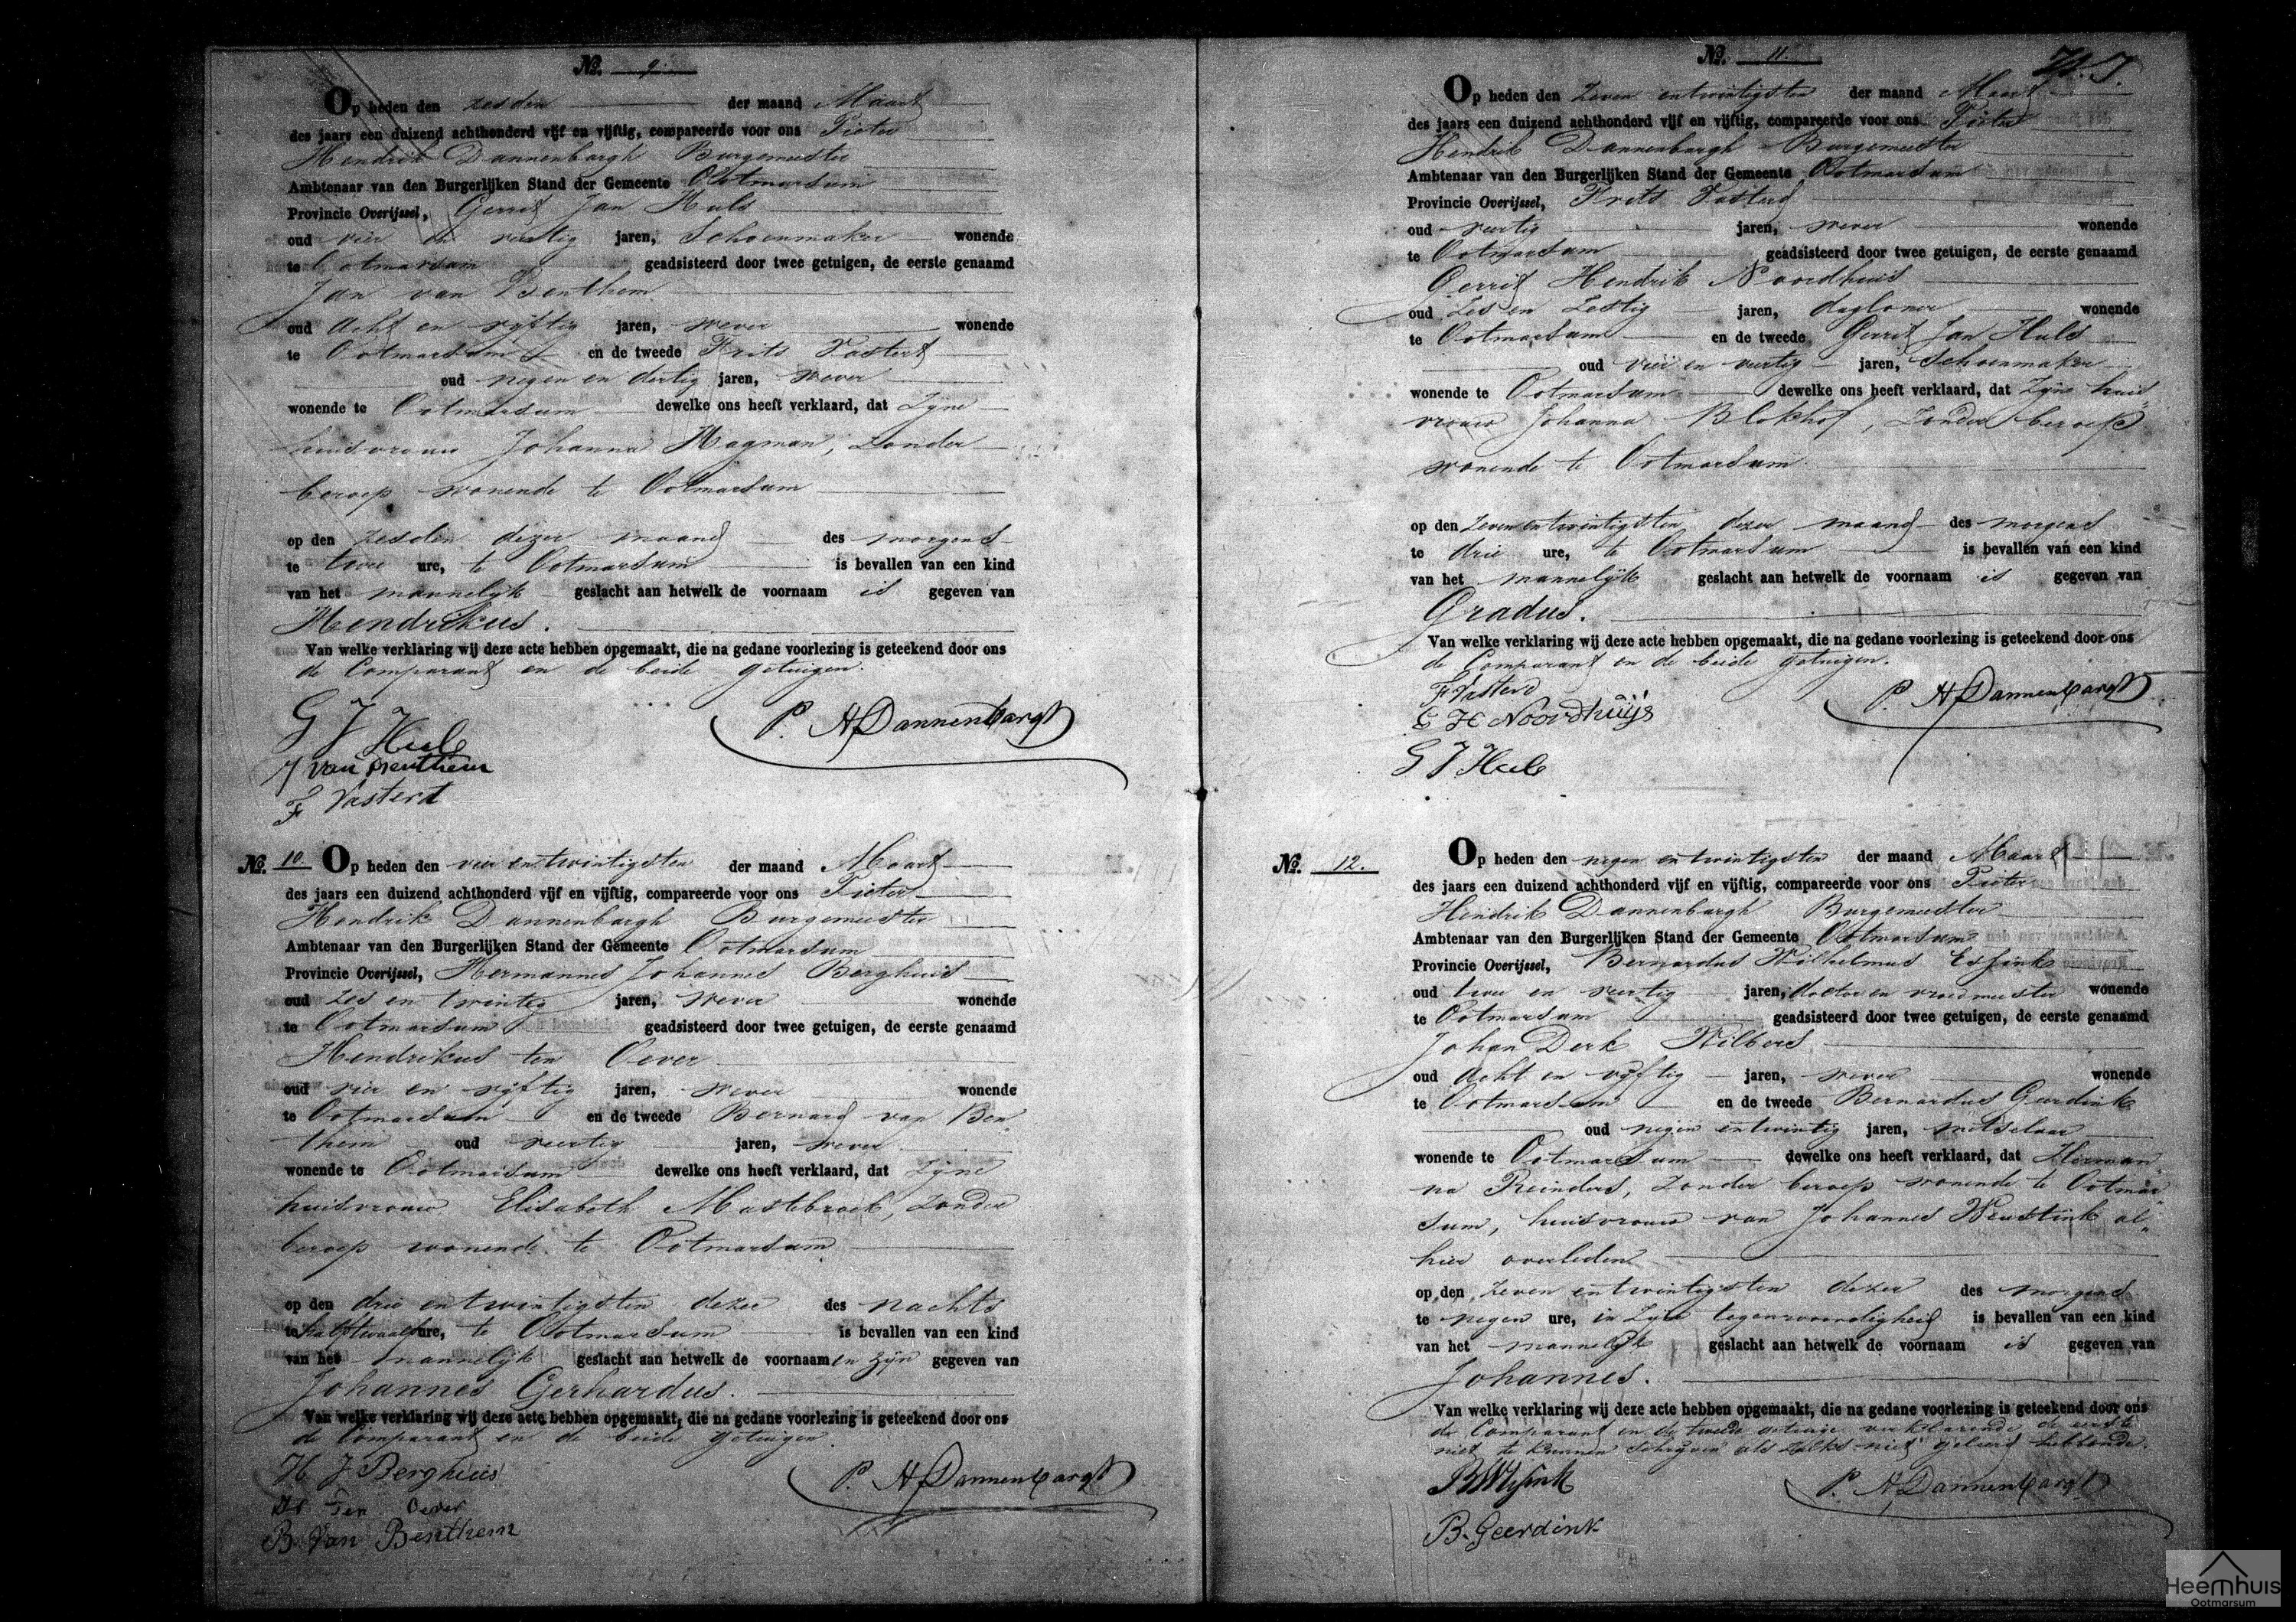 No. 9.
Op heden den zesden der maand Maart
des jaars een duizend achthonderd vijf en vijftig, compareerde voor ons Pieter
Hendrik Dannenbargh Burgemeester
Ambtenaar van den Burgerlijken Stand der Gemeente Ootmarsum
Provincie Overijssel, Gerrit Jan Huls
oud vier en veertig jaren, Schoenmaker wonende
te Ootmarsum geadsisteerd door twee getuigen, de eerste genaamd
Jan van Benthem
oud acht en vijftig jaren, wever wonende
te Ootmarsum en de tweede Frits Vastert
oud negen en dertig jaren, wever
wonende te Ootmarsum dewelke ons heeft verklaard, dat zijne
huisvrouw Johanna Hagman, zonder
beroep wonende te Ootmarsum
op den zesden dezer maand des morgens
te twee ure, te Ootmarsum is bevallen van een kind
van het mannelijk geslacht aan hetwelk de voornaam is gegeven van
Hendrikus.
Van welke verklaring wij deze acte hebben opgemaakt, die na gedane voorlezing is geteekend door ons
de Comparant en de beide getuigen.
G J Huls
P. H Dannenbargh
J van Benthem
F Vastert
No. 10. Op heden den vier en twintigsten der maand Maart
des jaars een duizend achthonderd vijf en vijftig, compareerde voor ons Pieter
Hendrik Dannenbargh Burgemeester
Ambtenaar van den Burgerlijken Stand der Gemeente Ootmarsum
Provincie Overijssel, Hermannes Johannes Berghuis
oud zes en twintig jaren, wever wonende
te Ootmarsum geadsisteerd door twee getuigen, de eerste genaamd
Hendrikus ten Oever
oud vier en vijftig jaren, wever wonende
te Ootmarsum en de tweede Bernard van Ben
them oud veertig jaren, wever
wonende te Ootmarsum dewelke ons heeft verklaard, dat zijne
huisvrouw Elisabeth Mastebroek, zonder
beroep wonende te Ootmarsum
op den drie en twintigsten dezer des nachts
te half twaalf ure, te Ootmarsum is bevallen van een kind
van het mannelijk geslacht aan hetwelk de voornaamen zijn gegeven van
Johannes Gerhardus.
Van welke verklaring wij deze acte hebben opgemaakt, die na gedane voorlezing is geteekend door ons
de Comparant en de beide getuigen
H J Berghuis
P. H Dannenbargh
Ten Oever
B Van Benthem
No. 11.
Op heden den zeven en twintigsten der maand Maart
des jaars een duizend achthonderd vijf en vijftig, compareerde voor ons Pieter
Hendrik Dannenbargh Burgemeester
Ambtenaar van den Burgerlijken Stand der Gemeente Ootmarsum
Provincie Overijssel, Frits Vastert
oud veertig jaren, wever wonende
te Ootmarsum geadsisteerd door twee getuigen, de eerste genaamd
Gerrit Hendrik Noordhuis
oud zes en zestig jaren, dagloner wonende
te Ootmarsum en de tweede Gerrit Jan Huls
oud vier en veertig jaren, Schoenmaker
wonende te Ootmarsum dewelke ons heeft verklaard, dat zijn huis
vrouw Johanna Blokhof, zonder beroep
wonende te Ootmarsum
op den zeven en twintigsten dezer maand des morgens
te drie ure, te Ootmarsum is bevallen van een kind
van het mannelijk geslacht aan hetwelk de voornaam is gegeven van
Gradus.
Van welke verklaring wij deze acte hebben opgemaakt, die na gedane voorlezing is geteekend door ons
de Comparant en de beide getuigen.
F Vasterd
P. H Dannenbargh
G H Noordhuijs
G J Huls
No. 12.
Op heden den negen en twintigsten der maand Maart
des jaars een duizend achthonderd vijf en vijftig, compareerde voor ons Pieter
Hendrik Dannenbargh Burgemeester
Ambtenaar van den Burgerlijken Stand der Gemeente Ootmarsum
Provincie Overijssel, Bernardus Wilhelmus Essink
oud twee en veertig jaren, doctor en vroedmeester wonende
te Ootmarsum geadsisteerd door twee getuigen, de eerste genaamd
Johan Derk Wilbers
oud acht en vijftig jaren, wever wonende
te Ootmarsum en de tweede Bernardus Geerdink
oud negen en twintig jaren, metselaar
wonende te Ootmarsum dewelke ons heeft verklaard, dat Herman
na Reinders, zonder beroep wonende te Ootmar
sum, huisvrouw van Johannes Weustink al
hier overleden
op den zeven en twintigsten dezer des morgens
te negen ure, in zijn tegenwoordigheid is bevallen van een kind
van het mannelijk geslacht aan hetwelk de voornaam is gegeven van
Johannes.
Van welke verklaring wij deze acte hebben opgemaakt, die na gedane voorlezing is geteekend door ons
de Comparant en de tweede getuige verklarende de eerste
niet te kunnen schrijven als zulks niet geleerd hebbende.
P. H Dannenbargh
B. Geerdink
Heemhuis
Ootmarsum